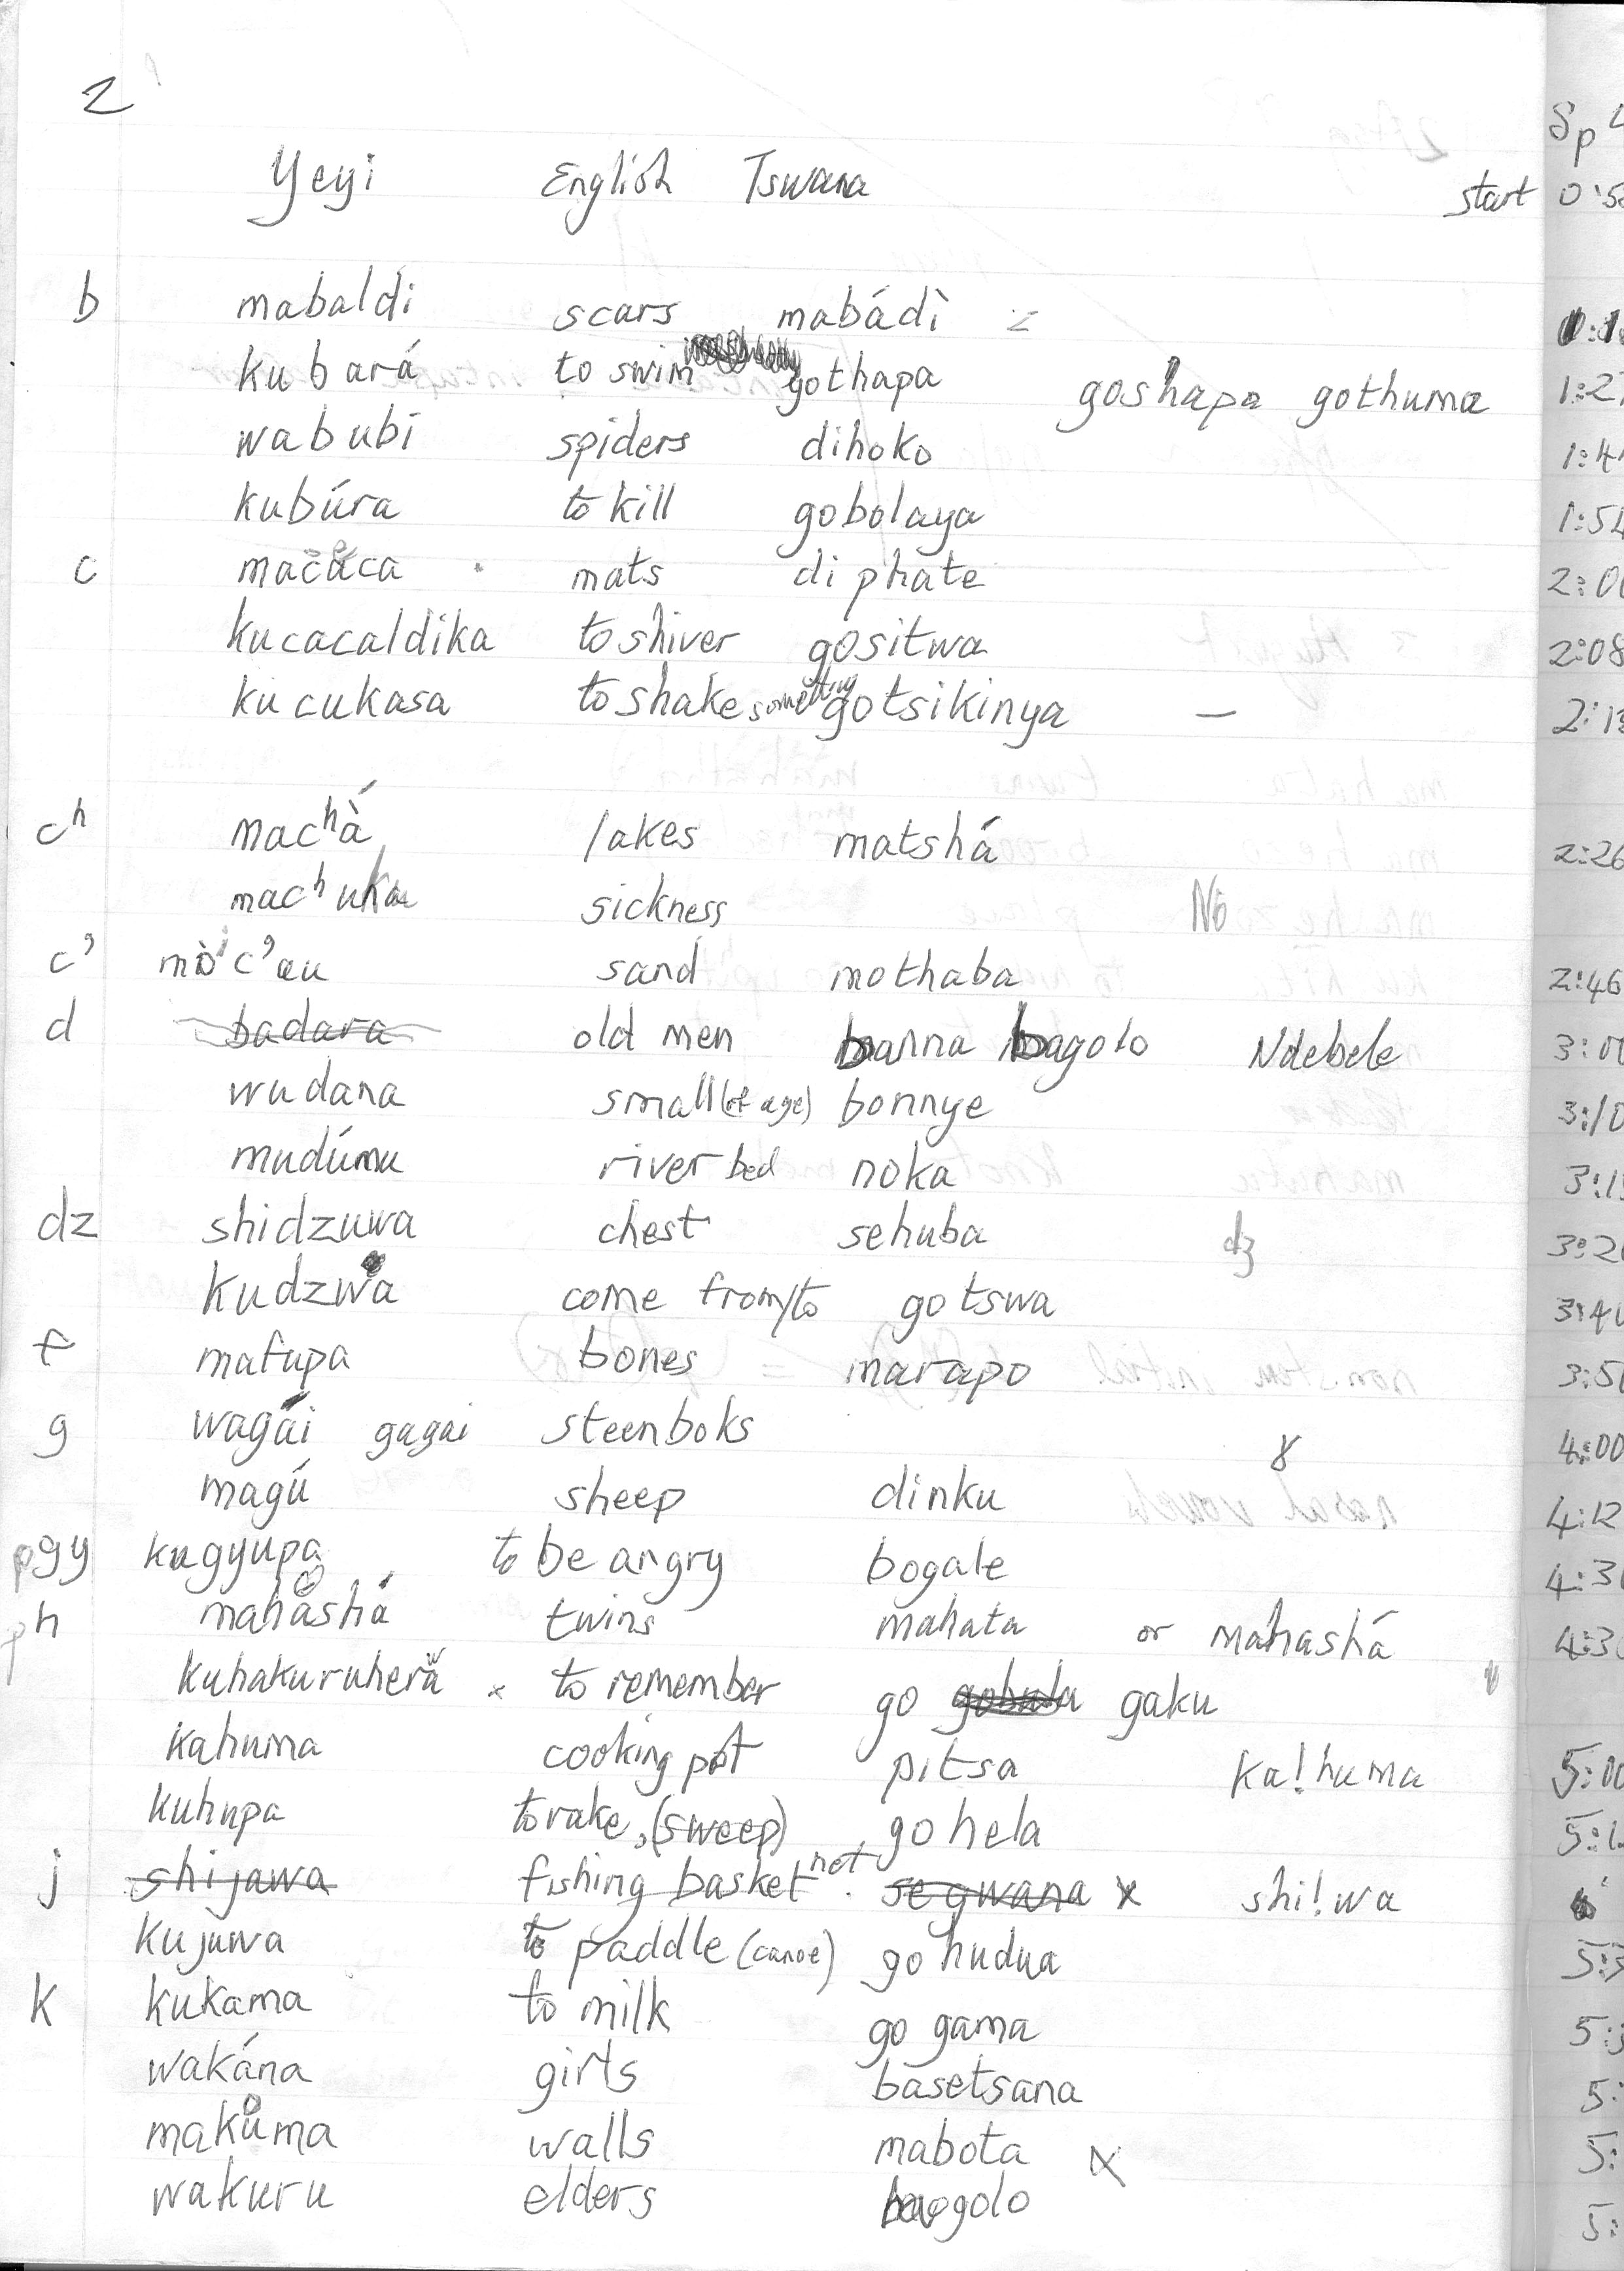 2
Yeyi English Tswana start
b mabaldi scars mabádì
kubará to swim gothapa goshapa gothuma
wabubi spiders dihoko
kubúra to kill gobolaya
c macaca mats diphate
kucacaldika to shiver gositwa
kucukasa to shake something gotsikinya —
cʰ macʰà lakes matshá
macʰuka sickness No
c' c'au sand mothaba
d badara old men banna bagolo Ndebele
wudana small (of age) bonnye
mudúmu river bed noka
dz shidzuwa chest sehuba dʒ
kudzwa come from/to gotswa
f mafupa bones marapo
g wagái gagai steenboks ɣ
magú sheep dinku
gy kugyupa to be angry bogale
h mahashá twins mahata or mahashá
kuhakuruhera x to remember go gaku
kahuma cooking pot pitsa ka!huma
kuhupa to rake, (sweep) go hela
j shijawa fishing basket not segwana x shi!wa
kujuwa to paddle (canoe) go hudua
k kukama to milk go gama
wakána girls basetsana
makuma walls mabota x
wakuru elders bagolo
Sp